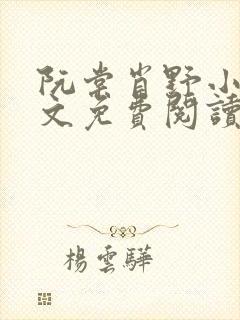 阮棠肖野小
文免費閱讀
楊雲驊